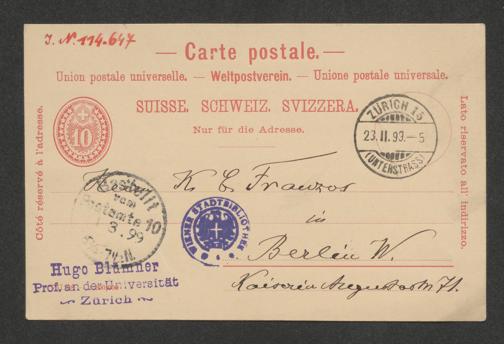 I. N. 114.647
— Carte postale. —
Union postale universelle. — Weltpostverein. — Unione postale universale.
SUISSE. SCHWEIZ. SVIZZERA.
Nur für die Adresse.
Côté réservé à l'adresse.
10
ZÜRICH 15
23.II.99.-5
(UNTERSTRASS)
Lato riservato all' indirizzo.
K E Franzos
in
Berlin W.
Kaiserin Augustastr 71.
Bestellt
vom
Postamte 10
3.99
WIENER STADTBIBLIOTHEK
Hugo Blümner
Prof. an der Universität
Zürich